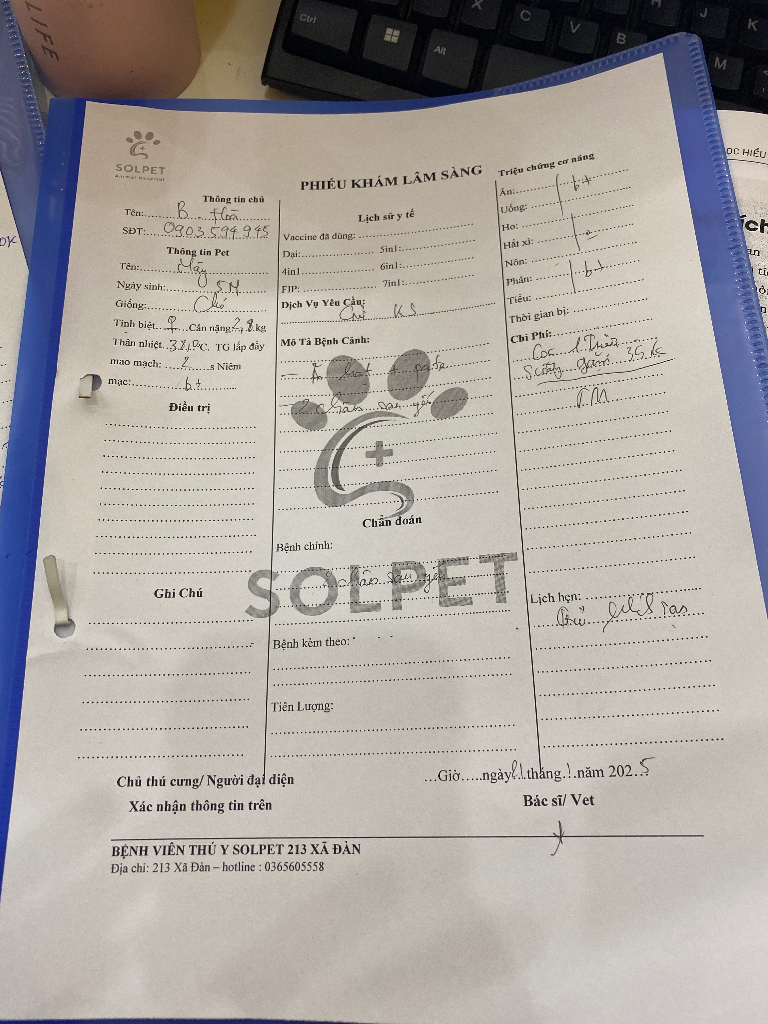 LIFE
Ctrl
Alt
X
C
V
B
J
K
M
SOLPET
Animal Hospital
PHIẾU KHÁM LÂM SÀNG
Thông tin chủ
Tên: B. Hòa
SĐT: 0903594945
Thông tin Pet
Tên: Mây
Ngày sinh: 5M
Giống: Chó
Tính biệt: ♀ Cân nặng 2,8 kg
Thân nhiệt °C. TG lấp đầy
mao mạch: 2 s Niêm
mạc: bt
Điều trị
Ghi Chú
Lịch sử y tế
Vaccine đã dùng:
Dại: 5in1:
4in1 6in1:
FIP: 7in1:
Dịch Vụ Yêu Cầu:
KS
Mô Tả Bệnh Cảnh:
- Ăn hạt + pate
2 chân sau yếu
Chẩn đoán
Bệnh chính:
chân sau yếu
SOLPET
Bệnh kèm theo:
Tiên Lượng:
Triệu chứng cơ năng
Ăn: bt
Uống:
Ho:
Hắt xì: -
Nôn:
Phân: bt
Tiểu:
Thời gian bị:
Chi Phí:
Cọc 1 Triệu
Sương gặm 35k
TM
Lịch hẹn:
Chủ tháng
Chủ thú cưng/ Người đại diện
Xác nhận thông tin trên
...Giờ.....ngày 11 tháng 1 năm 2025
Bác sĩ/ Vet
BỆNH VIỆN THÚ Y SOLPET 213 XÃ ĐÀN
Địa chỉ: 213 Xã Đàn – hotline : 0365605558
ỌC HIỂU